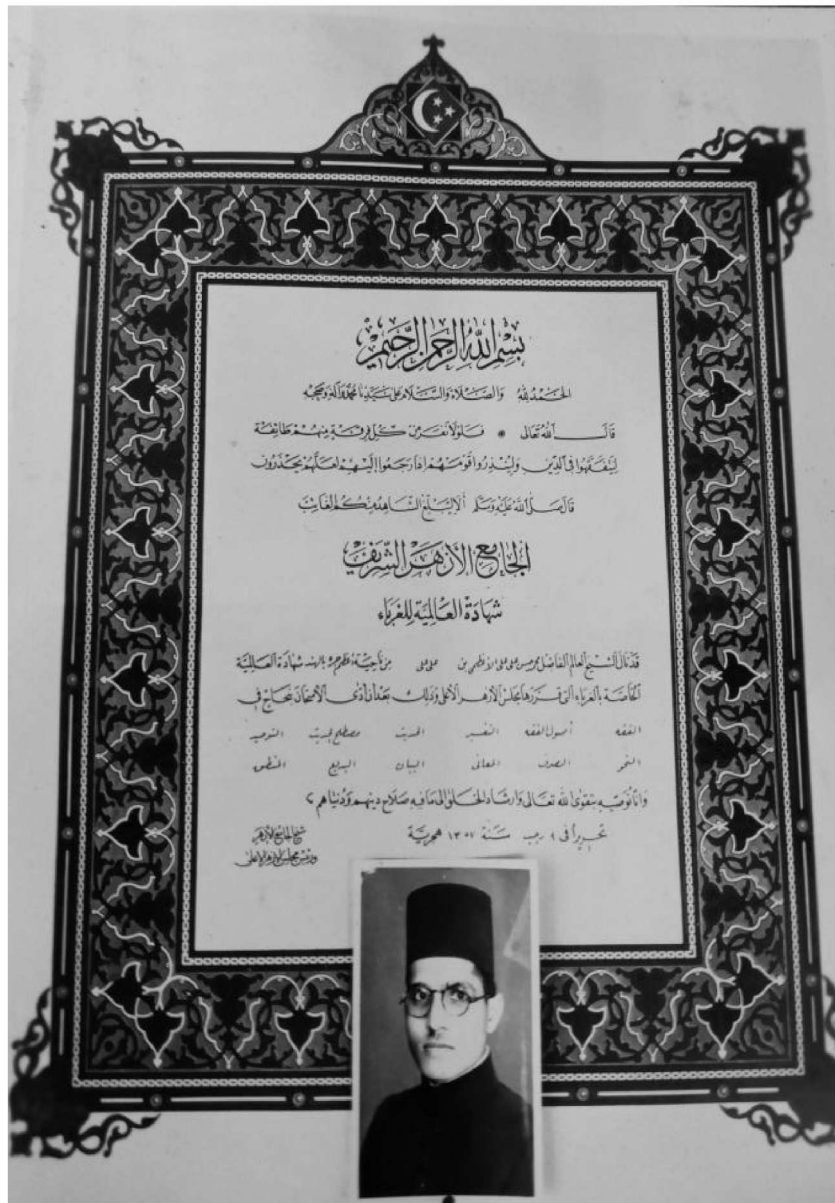 بسم الله الرحمن الرحيم
الحمد لله والصلاة والسلام على سيدنا محمد وآله وصحبه
قال الله تعالى * فلولا نفر من كل فرقة منهم طائفة
ليتفقهوا في الدين ولينذروا قومهم إذا رجعوا إليهم لعلهم يحذرون
قال صلى الله عليه وسلم ألا ليبلغ الشاهد منكم الغائب
الجامع الأزهر الشريف
شهادة العالمية للغرباء
قد نال الشيخ العالم الفاضل على الأعظمى بن على من ناحية بالهند شهادة العالمية
الخاصة بالغرباء التى قررها مجلس الأزهر الأعلى وذلك بعد أن أدى الامتحان بنجاح في
الفقه أصول الفقه التفسير الحديث مصطلح الحديث التوحيد
النحو الصرف المعانى البيان البديع المنطق
وإنا نوصيه بتقوى الله تعالى وإرشاد الخلق إلى ما فيه صلاح دينهم ودنياهم
تحريراً فى ٩ رجب سنة ١٣٥٧ هجرية
شيخ الجامع الأزهر
ورئيس مجلس الأزهر الأعلى